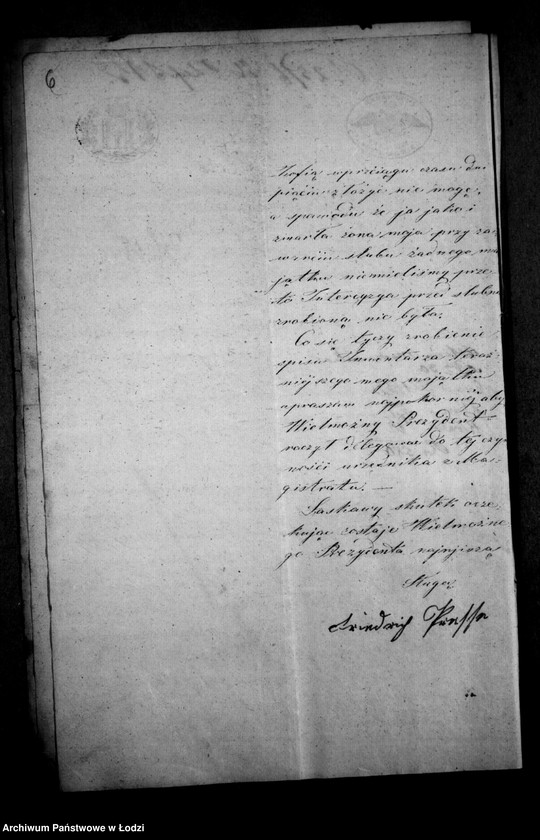 6
Zofią w prziciągu czasu dni
pięciu złożyć nie mogę,
a powodu że ja jako i
zmarła żona moja przy za-
warciu ślubu żadnego ma
jątku niemieliśmy prze-
to Intercyza przed ślubna
zrobioną nie była.
Co się tyczy zrobienie
spisu Inwentarza teraz-
niejszego mego majątku
upraszam najpokorniéj aby
Wielmożny Prezydent
raczył delegować do téj czy-
ności urzędnika z Ma-
gistratu. —
Łaskawy skutek ocze-
kując zostaję Wielmożne-
go Prezydenta najniższą
Sługą
Friedrich Presse
Archiwum Państwowe w Łodzi